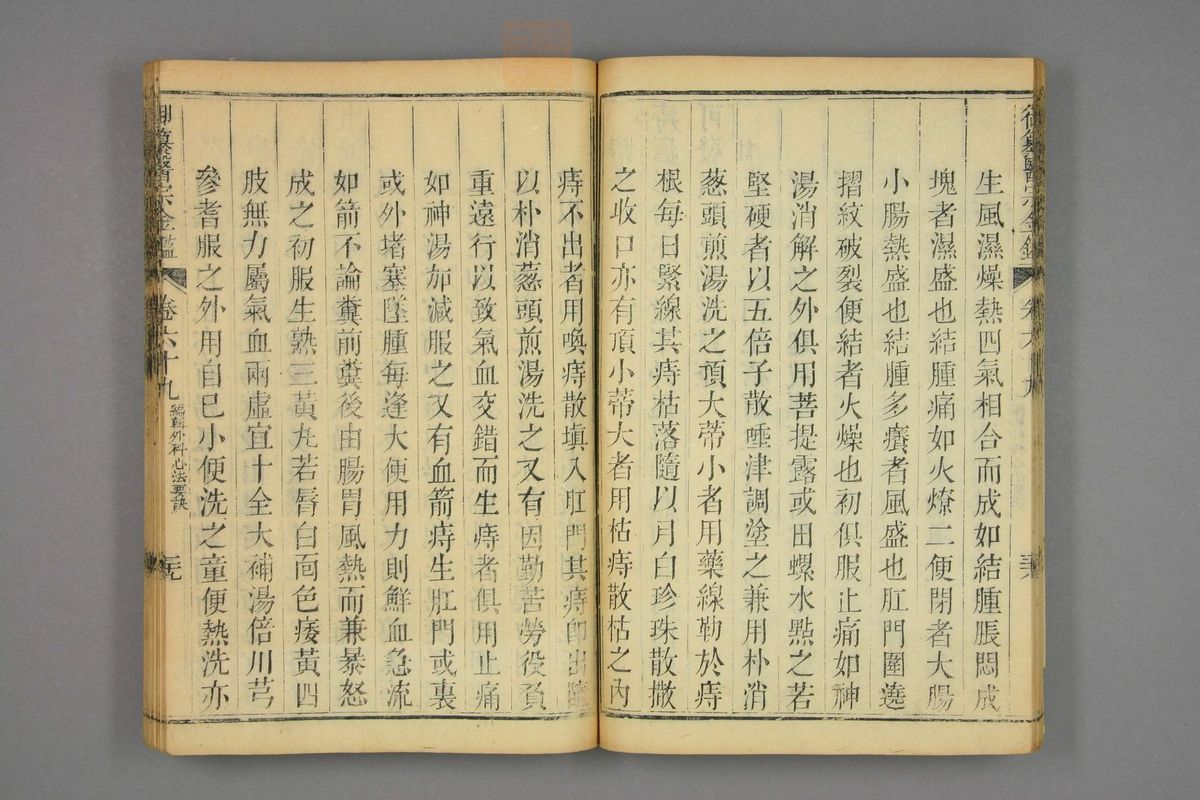 御纂醫宗金鑑 卷六十九
生風濕燥熱四氣相合而成如結腫脹悶成
塊者濕盛也結腫痛如火燎二便閉者大腸
小腸熱盛也結腫多癢者風盛也肛門圍遶
摺紋破裂便結者火燥也初俱服止痛如神
湯消解之外俱用菩提露或田螺水點之若
堅硬者以五倍子散唾津調塗之兼用朴消
葱頭煎湯洗之頂大蒂小者用藥線勒於痔
根每日緊線其痔枯落隨以月白珍珠散撒
之收口亦有頂小蒂大者用枯痔散枯之內
痔不出者用喚痔散填入肛門其痔即出隨
以朴消葱頭煎湯洗之又有因勤苦勞役負
重遠行以致氣血交錯而生痔者俱用止痛
如神湯加減服之又有血箭痔生肛門或裏
或外堵塞墜腫每逢大便用力則鮮血急流
如箭不論糞前糞後由腸胃風熱而兼暴怒
成之初服生熟三黃丸若唇白面色痿黃四
肢無力屬氣血兩虛宜十全大補湯倍川芎
參耆服之外用自己小便洗之童便熱洗亦
御纂醫宗金鑑 卷六十九 編輯外科心法要訣